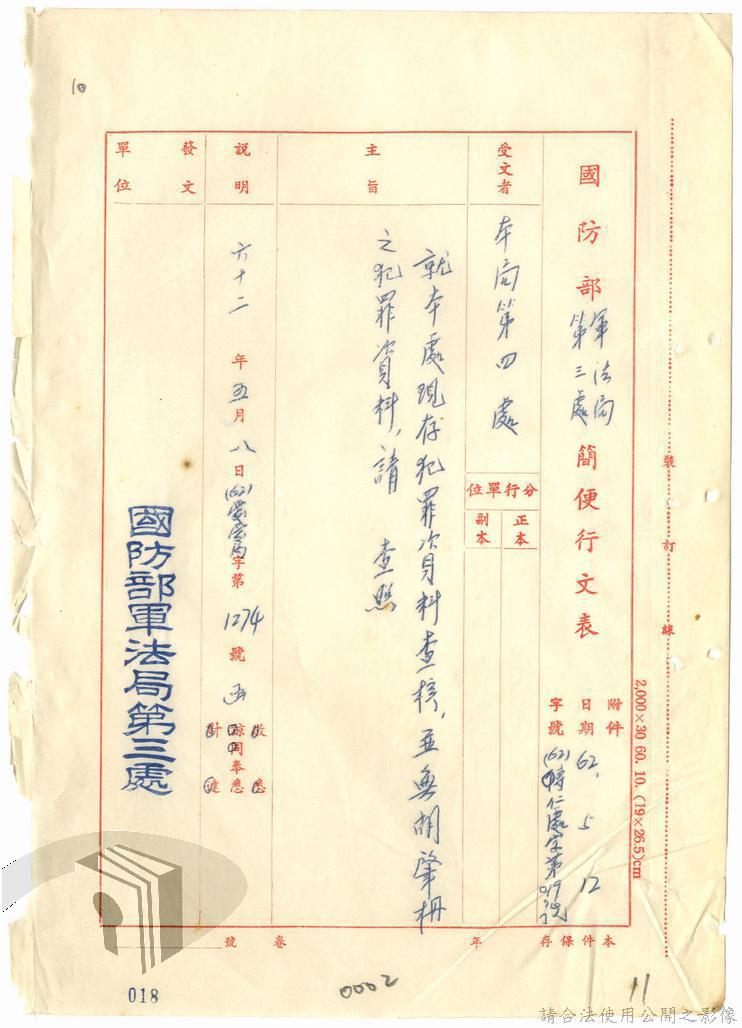 10
國防部軍法局第三處簡便行文表
附件
日期 62. 5. 12
字號
受文者
本局第四處
分行單位
正本
副本
主旨
就本處現存犯罪資料查核，並無胡肇枬
之犯罪資料，請 查照
說明
六十二年五月八日(62)
字第1274號
敬悉
發文單位
國防部軍法局第三處
本件保存 年
卷 號
裝訂線
2,000×30 60. 10. (19×26.5)cm
018
0002
11
請合法使用公開之影像